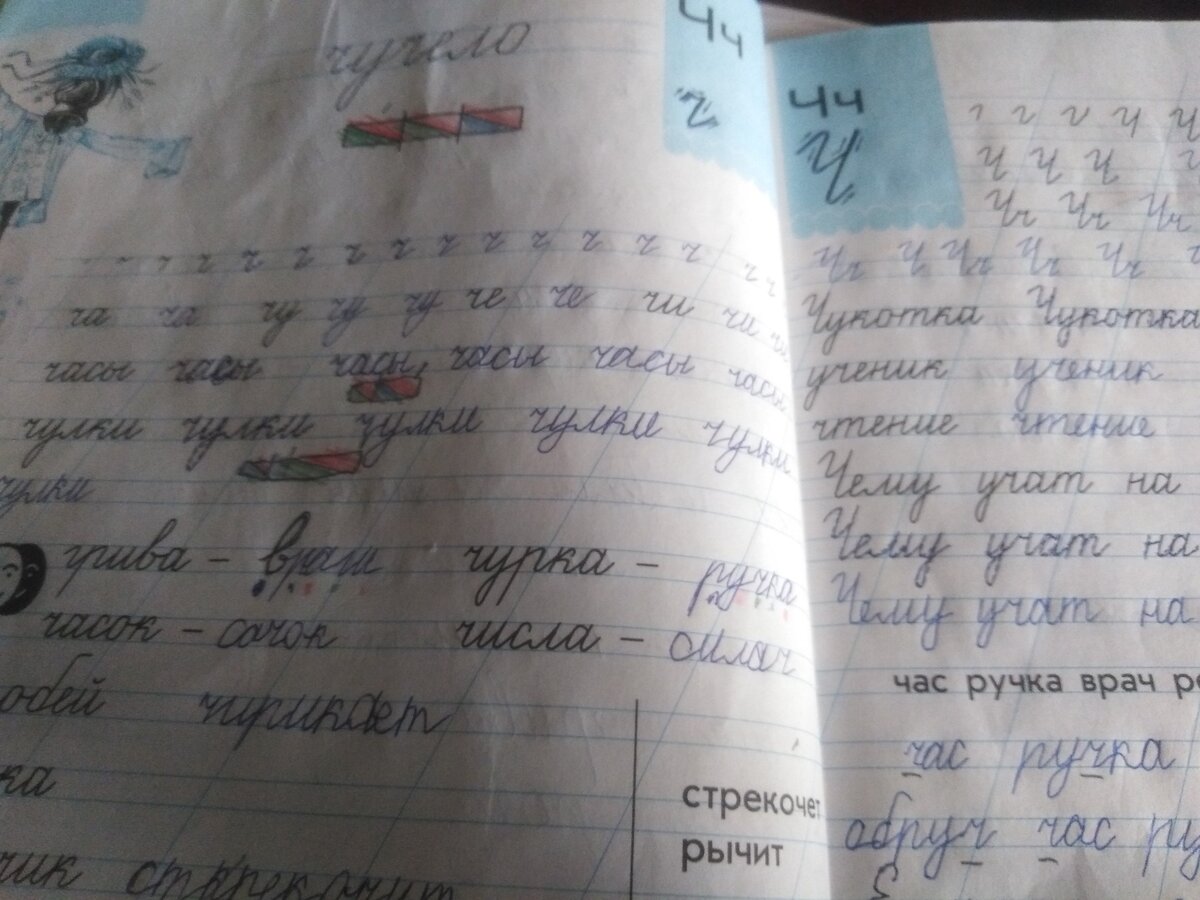 чучело
Чч
ч
ч ч ч ч ч ч ч ч ч ч ч ч
ча ча чу чу чу че че чи чи чи
часы часы часы часы часы часы
чулки чулки чулки чулки чулки
чулки
грива – враг чурка – ручка
часок – сачок числа – силач
обей чирикает
ка
чик
стрекочет
рычит
Чч
Ч
Ч Ч Ч
Чч Чч Чч
Чч Ч Чч Чч Чч
Чукотка Чукотка
ученик ученик
чтение чтение
Чему учат на
Чему учат на
Чему учат на
час ручка врач
час ручка
обруч час ру